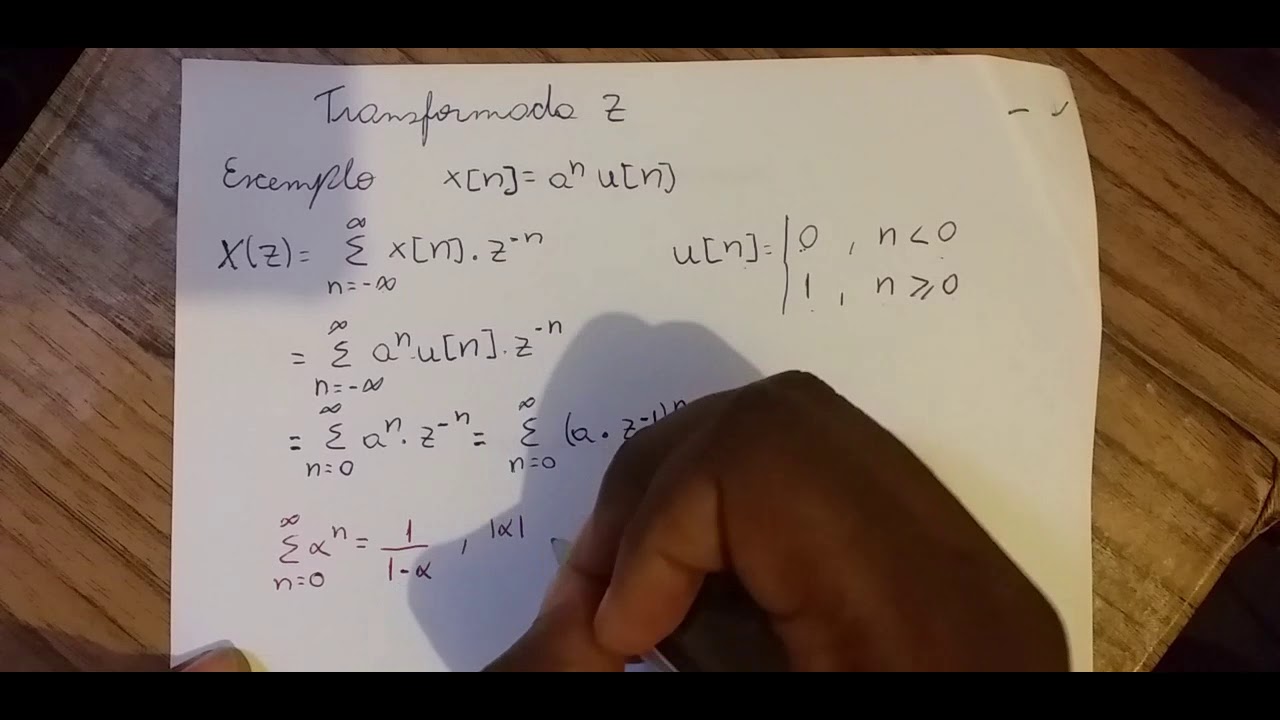 Transformada Z
Exemplo x[n]= aⁿ u[n]
X(z)= ∞ Σ n=-∞ x[n]. z⁻ⁿ
u[n]= | 0 , n < 0
1 , n ⩾ 0
= ∞ Σ n=-∞ aⁿ.u[n]. z⁻ⁿ
= ∞ Σ n=0 aⁿ. z⁻ⁿ = ∞ Σ n=0 (a . z⁻¹)ⁿ
∞ Σ n=0 αⁿ = 1/(1-α) , |α|